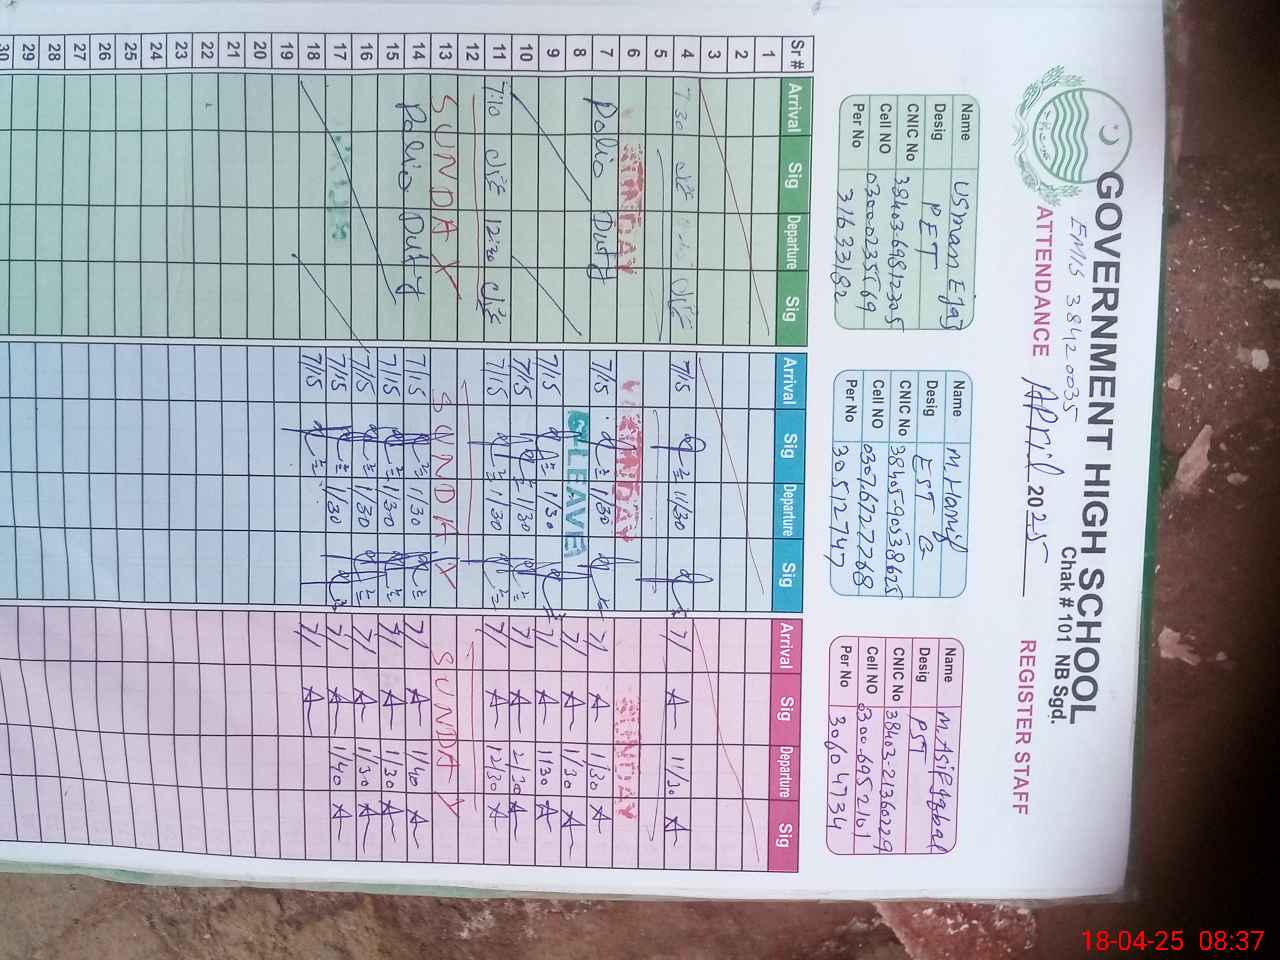 GOVERNMENT HIGH SCHOOL
Chak # 101 NB Sgd.
EMIS 38420035
ATTENDANCE April 2025 REGISTER STAFF
Name Usman Ejaz
Desig PET
CNIC No 38403-69812305
Cell NO 03000235569
Per No 31633182
Name M. Hanif
Desig EST
CNIC No 38405-9053862.5
Cell NO 03076727268
Per No 30512747
Name M. Asif Iqbal
Desig PST
CNIC No 38403-2136022.9
Cell NO 03006952101
Per No 30604734
Sr # Arrival Sig Departure Sig Arrival Sig Departure Sig Arrival Sig Departure Sig
1
2
3
4 7 30 7/15 11/30 7/ 11/30
5
6 SUNDAY SUNDAY SUNDAY
7 Polio Duty 7/15 1/30 7/ 1/30
8 LEAVE 7/ 1/30
9 7/15 1/30 7/ 1/30
10 7/15 1/30 7/
11 7:10 12:30 7/15 1/30 7/ 12/30
12
13 SUNDAY SUNDAY SUNDAY
14 Polio Duty 7/15 1/30 7/ 1/40
15 7/15 1/30 7/ 1/30
16 7/15 1/30 7/ 1/30
17 7/15 1/30 7/ 1/40
18 7/15 7/
19
20
21
22
23
24
25
26
27
28
29
30
18-04-25 08:37